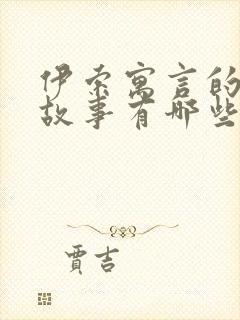 伊索寓言的
故事有哪些
賈吉